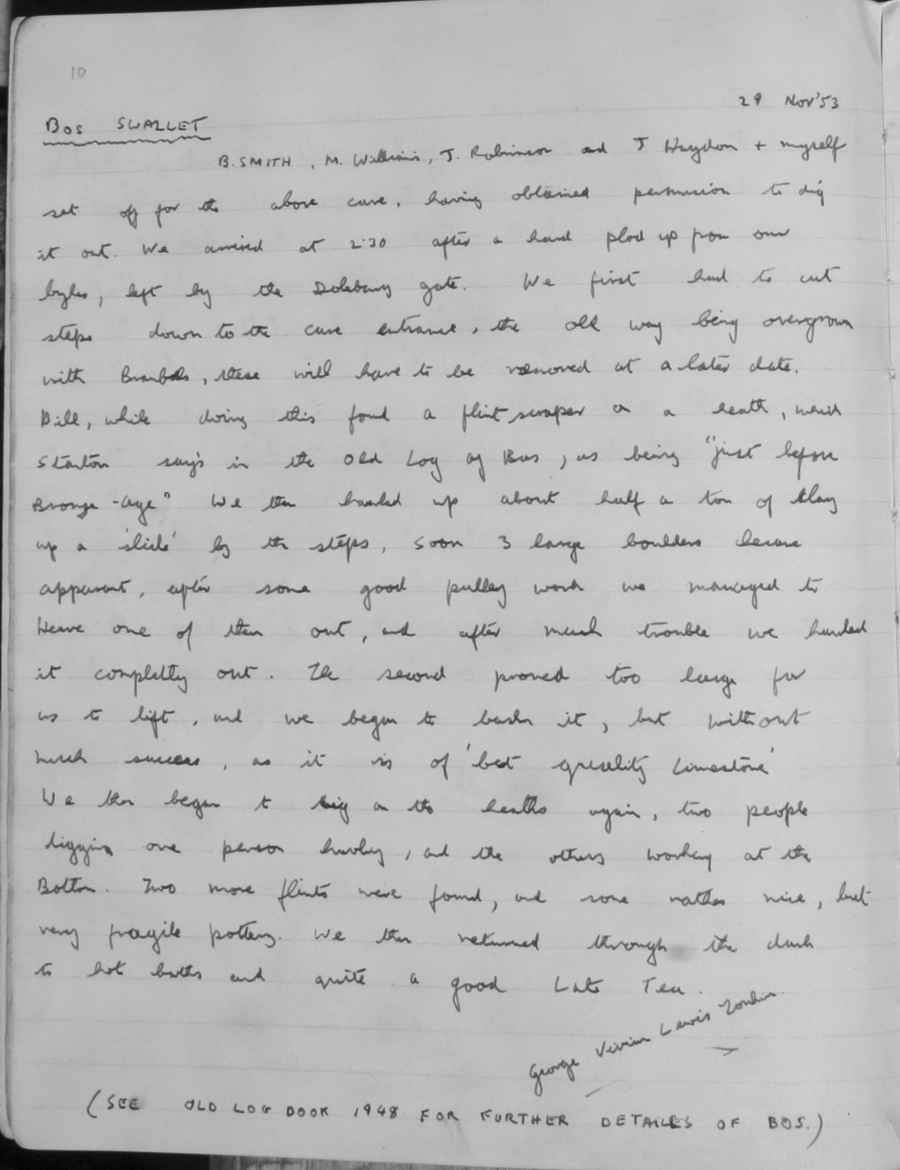 10
29 Nov '53
BOS SWALLET
B. SMITH, M. Williams, J. Robinson and J Haydon + myself
set off for the above cave, having obtained permission to dig
it out. We arrived at 2.30 after a hard plod up from our
bykes, left by the Dolebury gate. We first had to cut
steps down to the cave entrance, the old way being overgrown
with Brambles, these will have to be removed at a later date.
Bill, while doing this found a flint scraper on a heath, which
Stanton says in the Old Log of Bos, as being "just before
Bronze-age" We then hauled up about half a ton of Clay
up a 'slide' by the steps, soon 3 large boulders became
apparent, after some good pulley work we managed to
Heave one of them out, and after much trouble we hurded
it completly out. The second proved too large for
us to lift, and we began to bash it, but without
much success, as it is of 'best quality Limestone'
We then began to dig on the heaths again, two people
digging one person hauling, and the others working at the
Bottom. Two more flints were found, and some rather nice, but
very fragile pottery. We then returned through the dark
to hot baths and quite a good Late Tea.
George Vivian Lewis
(SEE OLD LOG BOOK 1948 FOR FURTHER DETAILS OF BOS.)